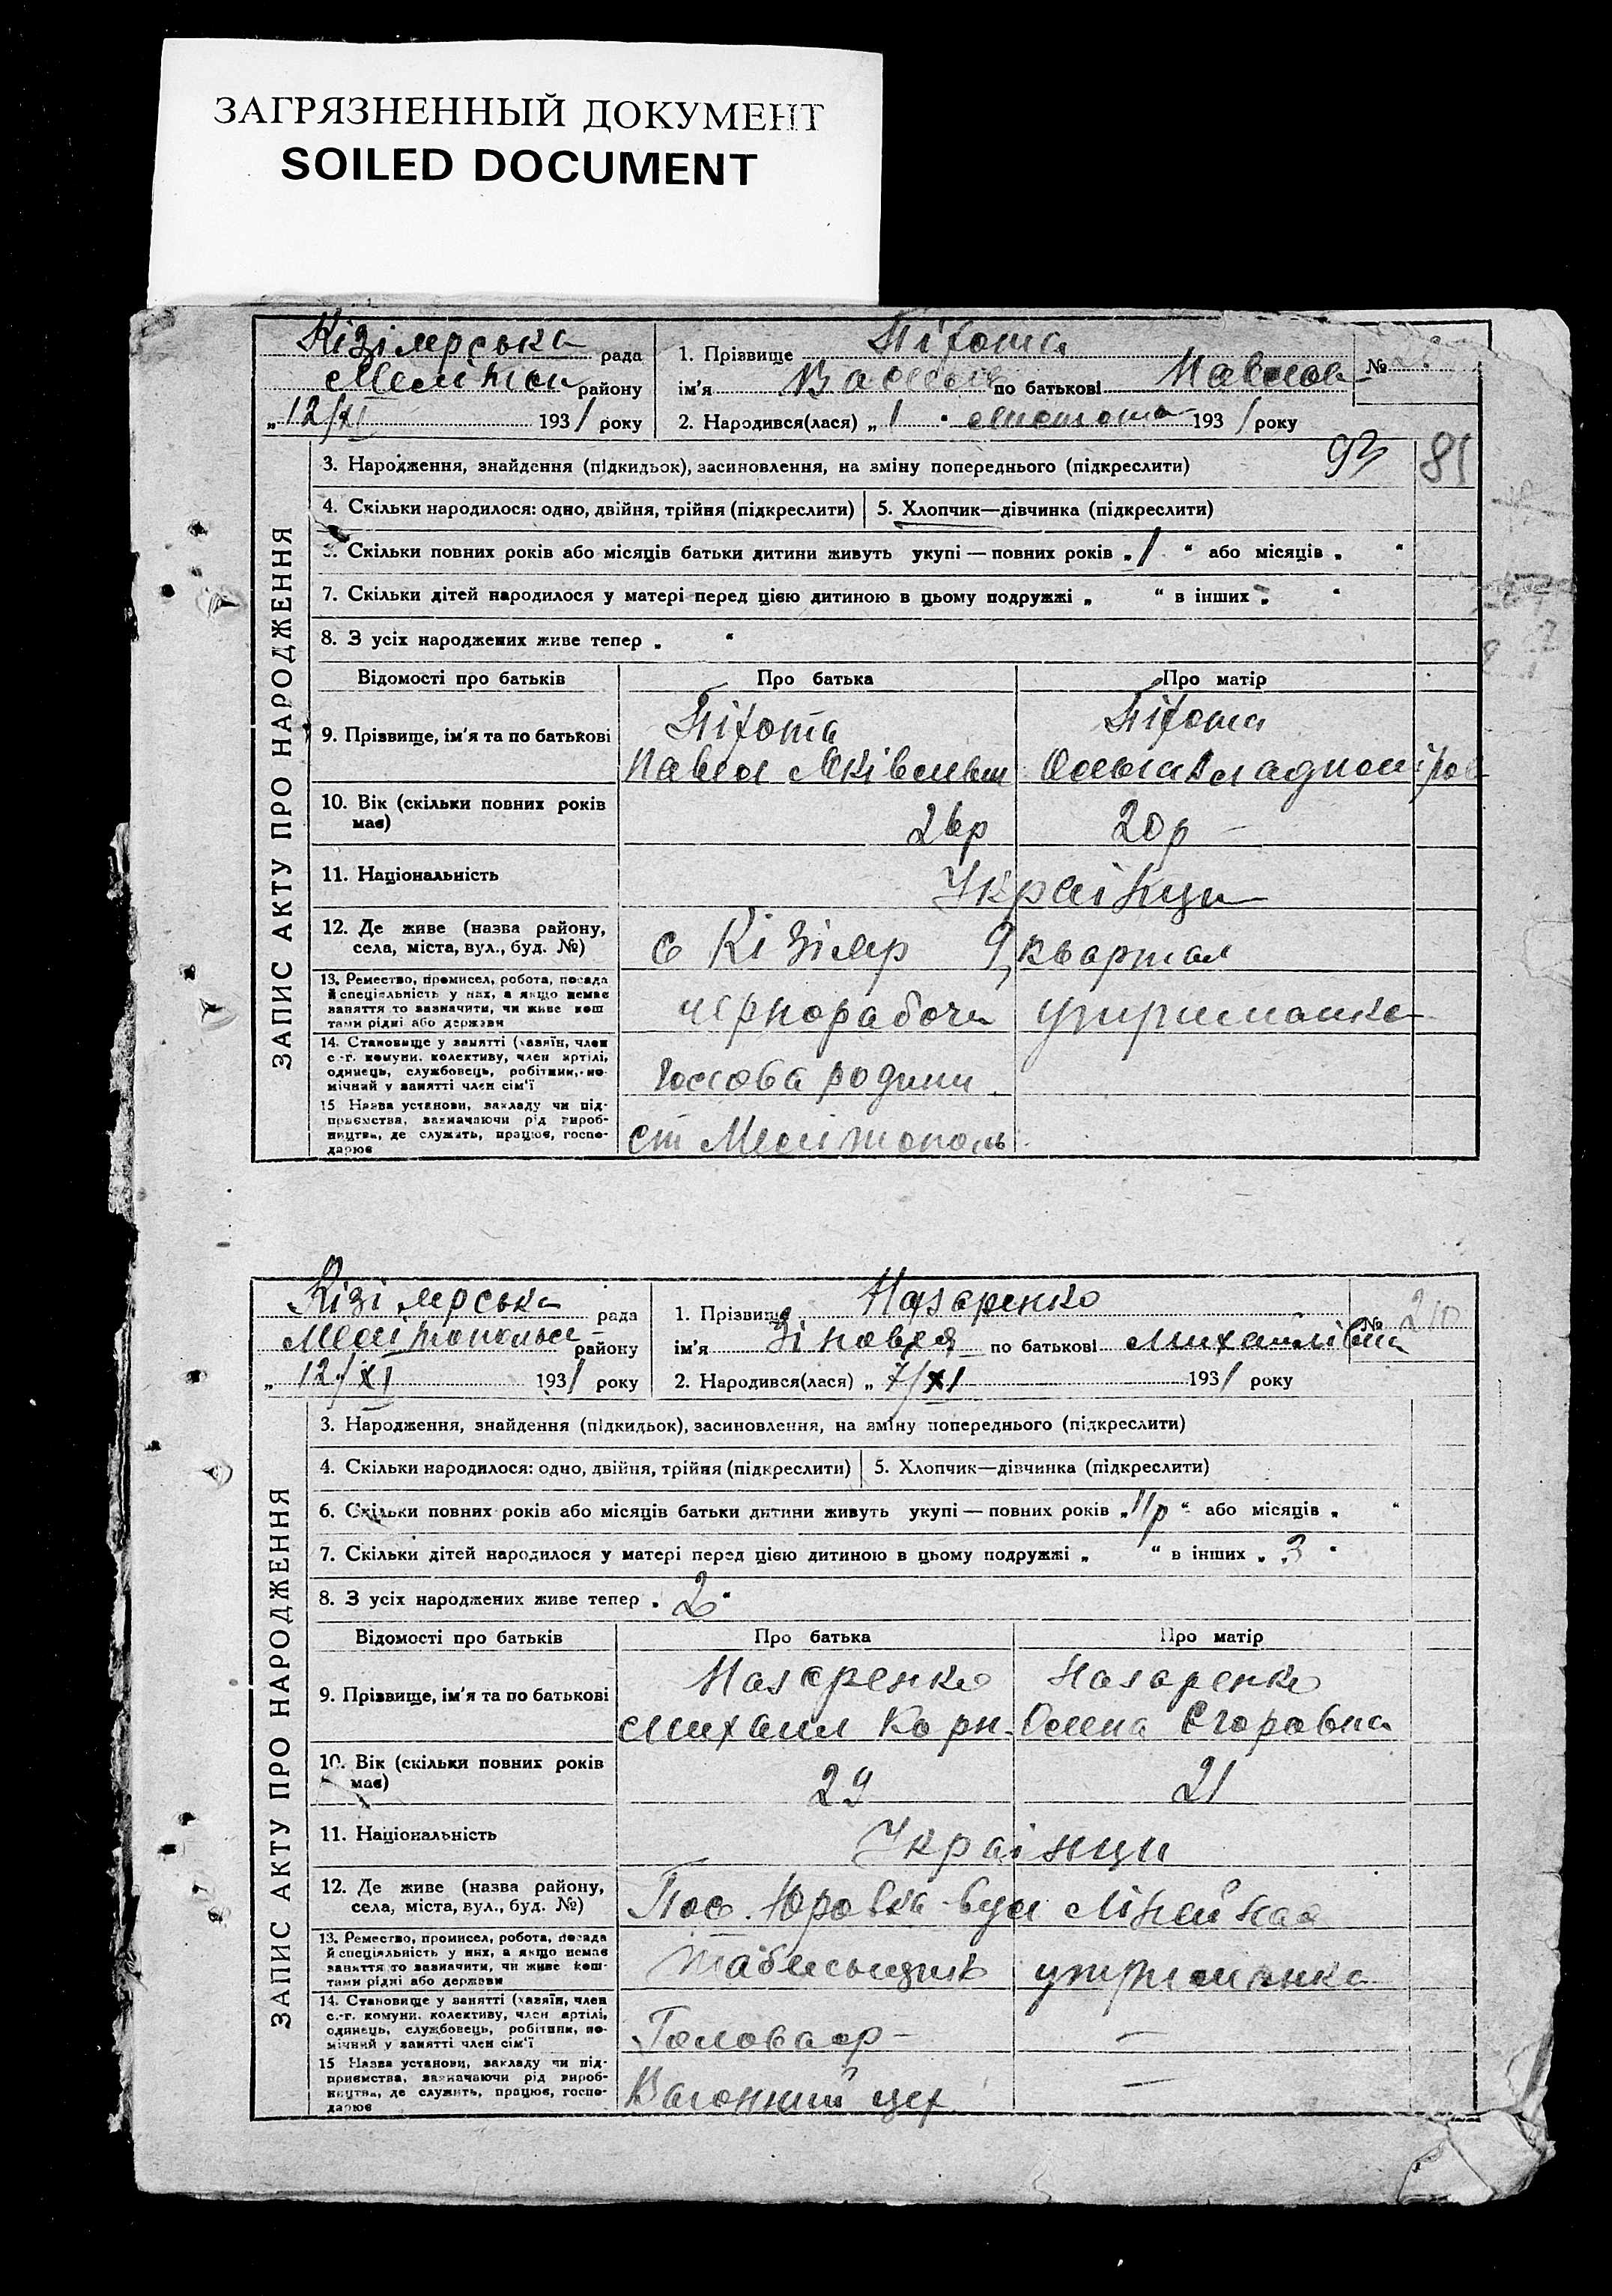 ЗАГРЯЗНЕННЫЙ ДОКУМЕНТ
SOILED DOCUMENT
Кізіярська рада
Мелітоп району
„12/XI 1931 року
1. Прізвище Піхота
ім'я Василь по батькові Павлов
№
2. Народився(лася) „1 " листопа 1931 року
93 85
ЗАПИС АКТУ ПРО НАРОДЖЕННЯ
3. Народження, знайдення (підкидьок), засиновлення, на зміну попереднього (підкреслити)
4. Скільки народилося: одно, двійня, трійня (підкреслити) 5. Хлопчик—дівчинка (підкреслити)
Скільки повних років або місяців батьки дитини живуть укупі — повних років „1 " або місяців „ "
7. Скільки дітей народилося у матері перед цією дитиною в цьому подружжі „ " в інших „ "
8. З усіх народжених живе тепер „ "
Відомості про батьків Про батька Про матір
9. Прізвище, ім'я та по батькові
Піхота Піхота
Павло Яківльвич Ольга Владиміров
10. Вік (скільки повних років має) 26р 20р
11. Національність Українци
12. Де живе (назва району, села, міста, вул., буд. №) с Кізіяр 9 квартал
13. Ремество, промисел, робота, посада й спеціяльність у них, а якщо немає заняття то зазначити, чи живе кош тами рідні або держави
чернорабочи утриманка
14. Становище у занятті (хазяїн, член с.-г. комуни, колективу, член артілі, одинець, службовець, робітник, по- мічний у занятті член сім'ї
родини
15 Назва установи, закладу чи під- приємства, зазначаючи рід вироб- ництва, де служить, працює, госпо- дарює
ст Мелітополь
Кізіярська рада
Мелітопольск району
„ 12/XI 1931 року
1. Прізвище Назаренко
ім'я Зіновея по батькові Михайлівни
№ 210
2. Народився(лася) „ 7/XI 1931 року
ЗАПИС АКТУ ПРО НАРОДЖЕННЯ
3. Народження, знайдення (підкидьок), засиновлення, на зміну попереднього (підкреслити)
4. Скільки народилося: одно, двійня, трійня (підкреслити) 5. Хлопчик—дівчинка (підкреслити)
6. Скільки повних років або місяців батьки дитини живуть укупі — повних років „11р " або місяців „ "
7. Скільки дітей народилося у матері перед цією дитиною в цьому подружжі „ " в інших „ 3 "
8. З усіх народжених живе тепер „ 2 "
Відомості про батьків Про батька Про матір
9. Прізвище, ім'я та по батькові
Назаренко Назаренко
Михаил Корн. Олена Єгоровна
10. Вік (скільки повних років має) 29 21
11. Національність Українци
12. Де живе (назва району, села, міста, вул., буд. №) Пос. Юровка вул Лінейная
13. Ремество, промисел, робота, посада й спеціяльність у них, а якщо немає заняття то зазначити, чи живе кош- тами рідні або держави
табельщик утриманка
14. Становище у занятті (хазяїн, член с.-г. комуни, колективу, член артілі, одинець, службовець, робітник, по- мічний у занятті член сім'ї
Голова —
15 Назва установи, закладу чи під- приємства, зазначаючи рід вироб- ництва, де служить, працює, госпо- дарює
Вагонний цех —